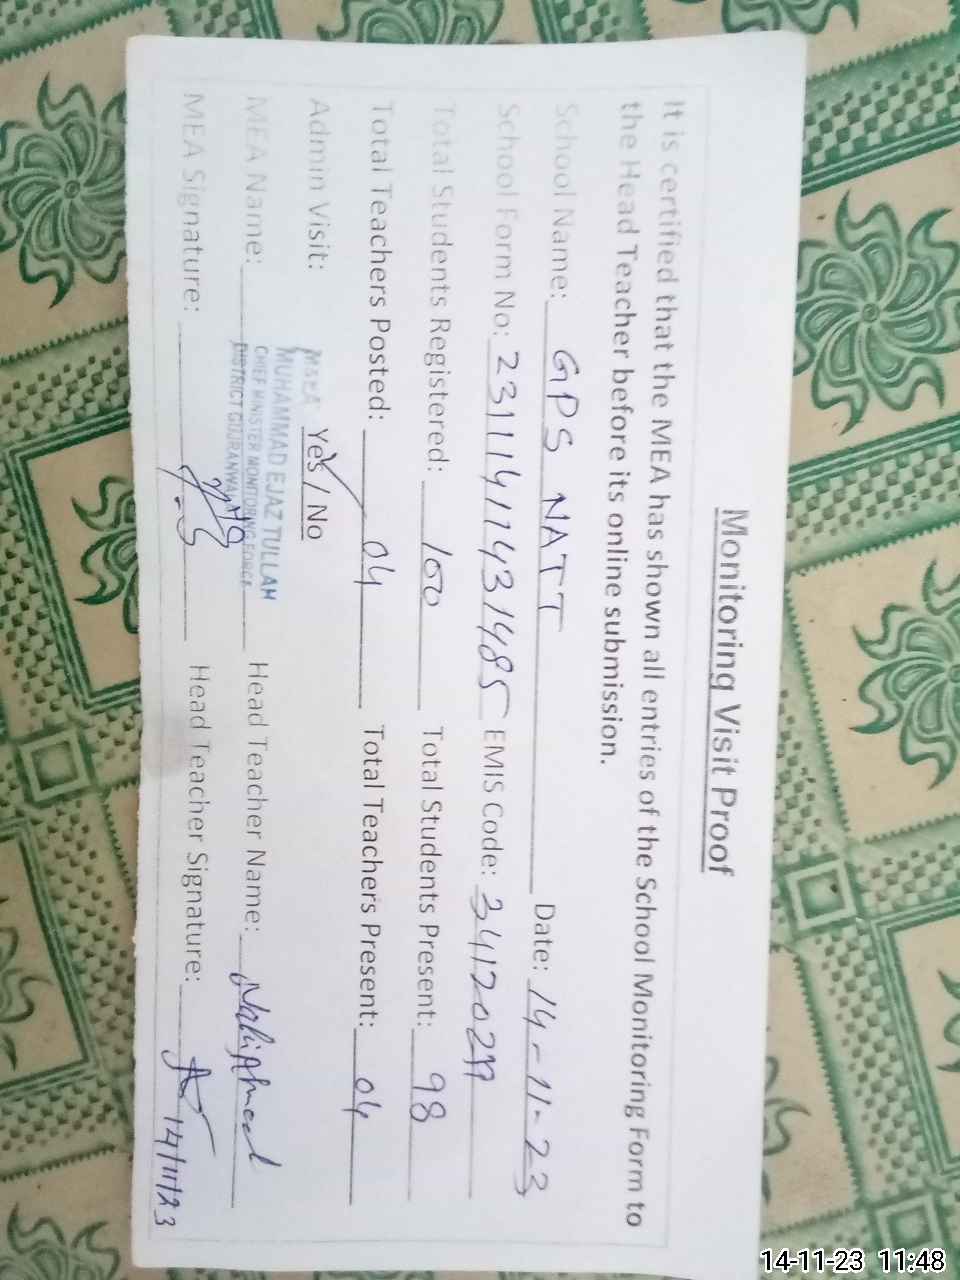 Monitoring Visit Proof
It is certified that the MEA has shown all entries of the School Monitoring Form to
the Head Teacher before its online submission.
School Name: GPS NATT Date: 14-11-23
School Form No: 23111411743 1485 EMIS Code: 34120277
Total Students Registered: 100 Total Students Present: 98
Total Teachers Posted: 04 Total Teachers Present: 04
Admin Visit: Yes / No
M&EA
MUHAMMAD EJAZ TULLAH
CHIEF MINISTER MONITORING FORCE
DISTRICT GUJRANWALA
MEA Name: Head Teacher Name:
MEA Signature: Head Teacher Signature: 14/11/23
14-11-23 11:48